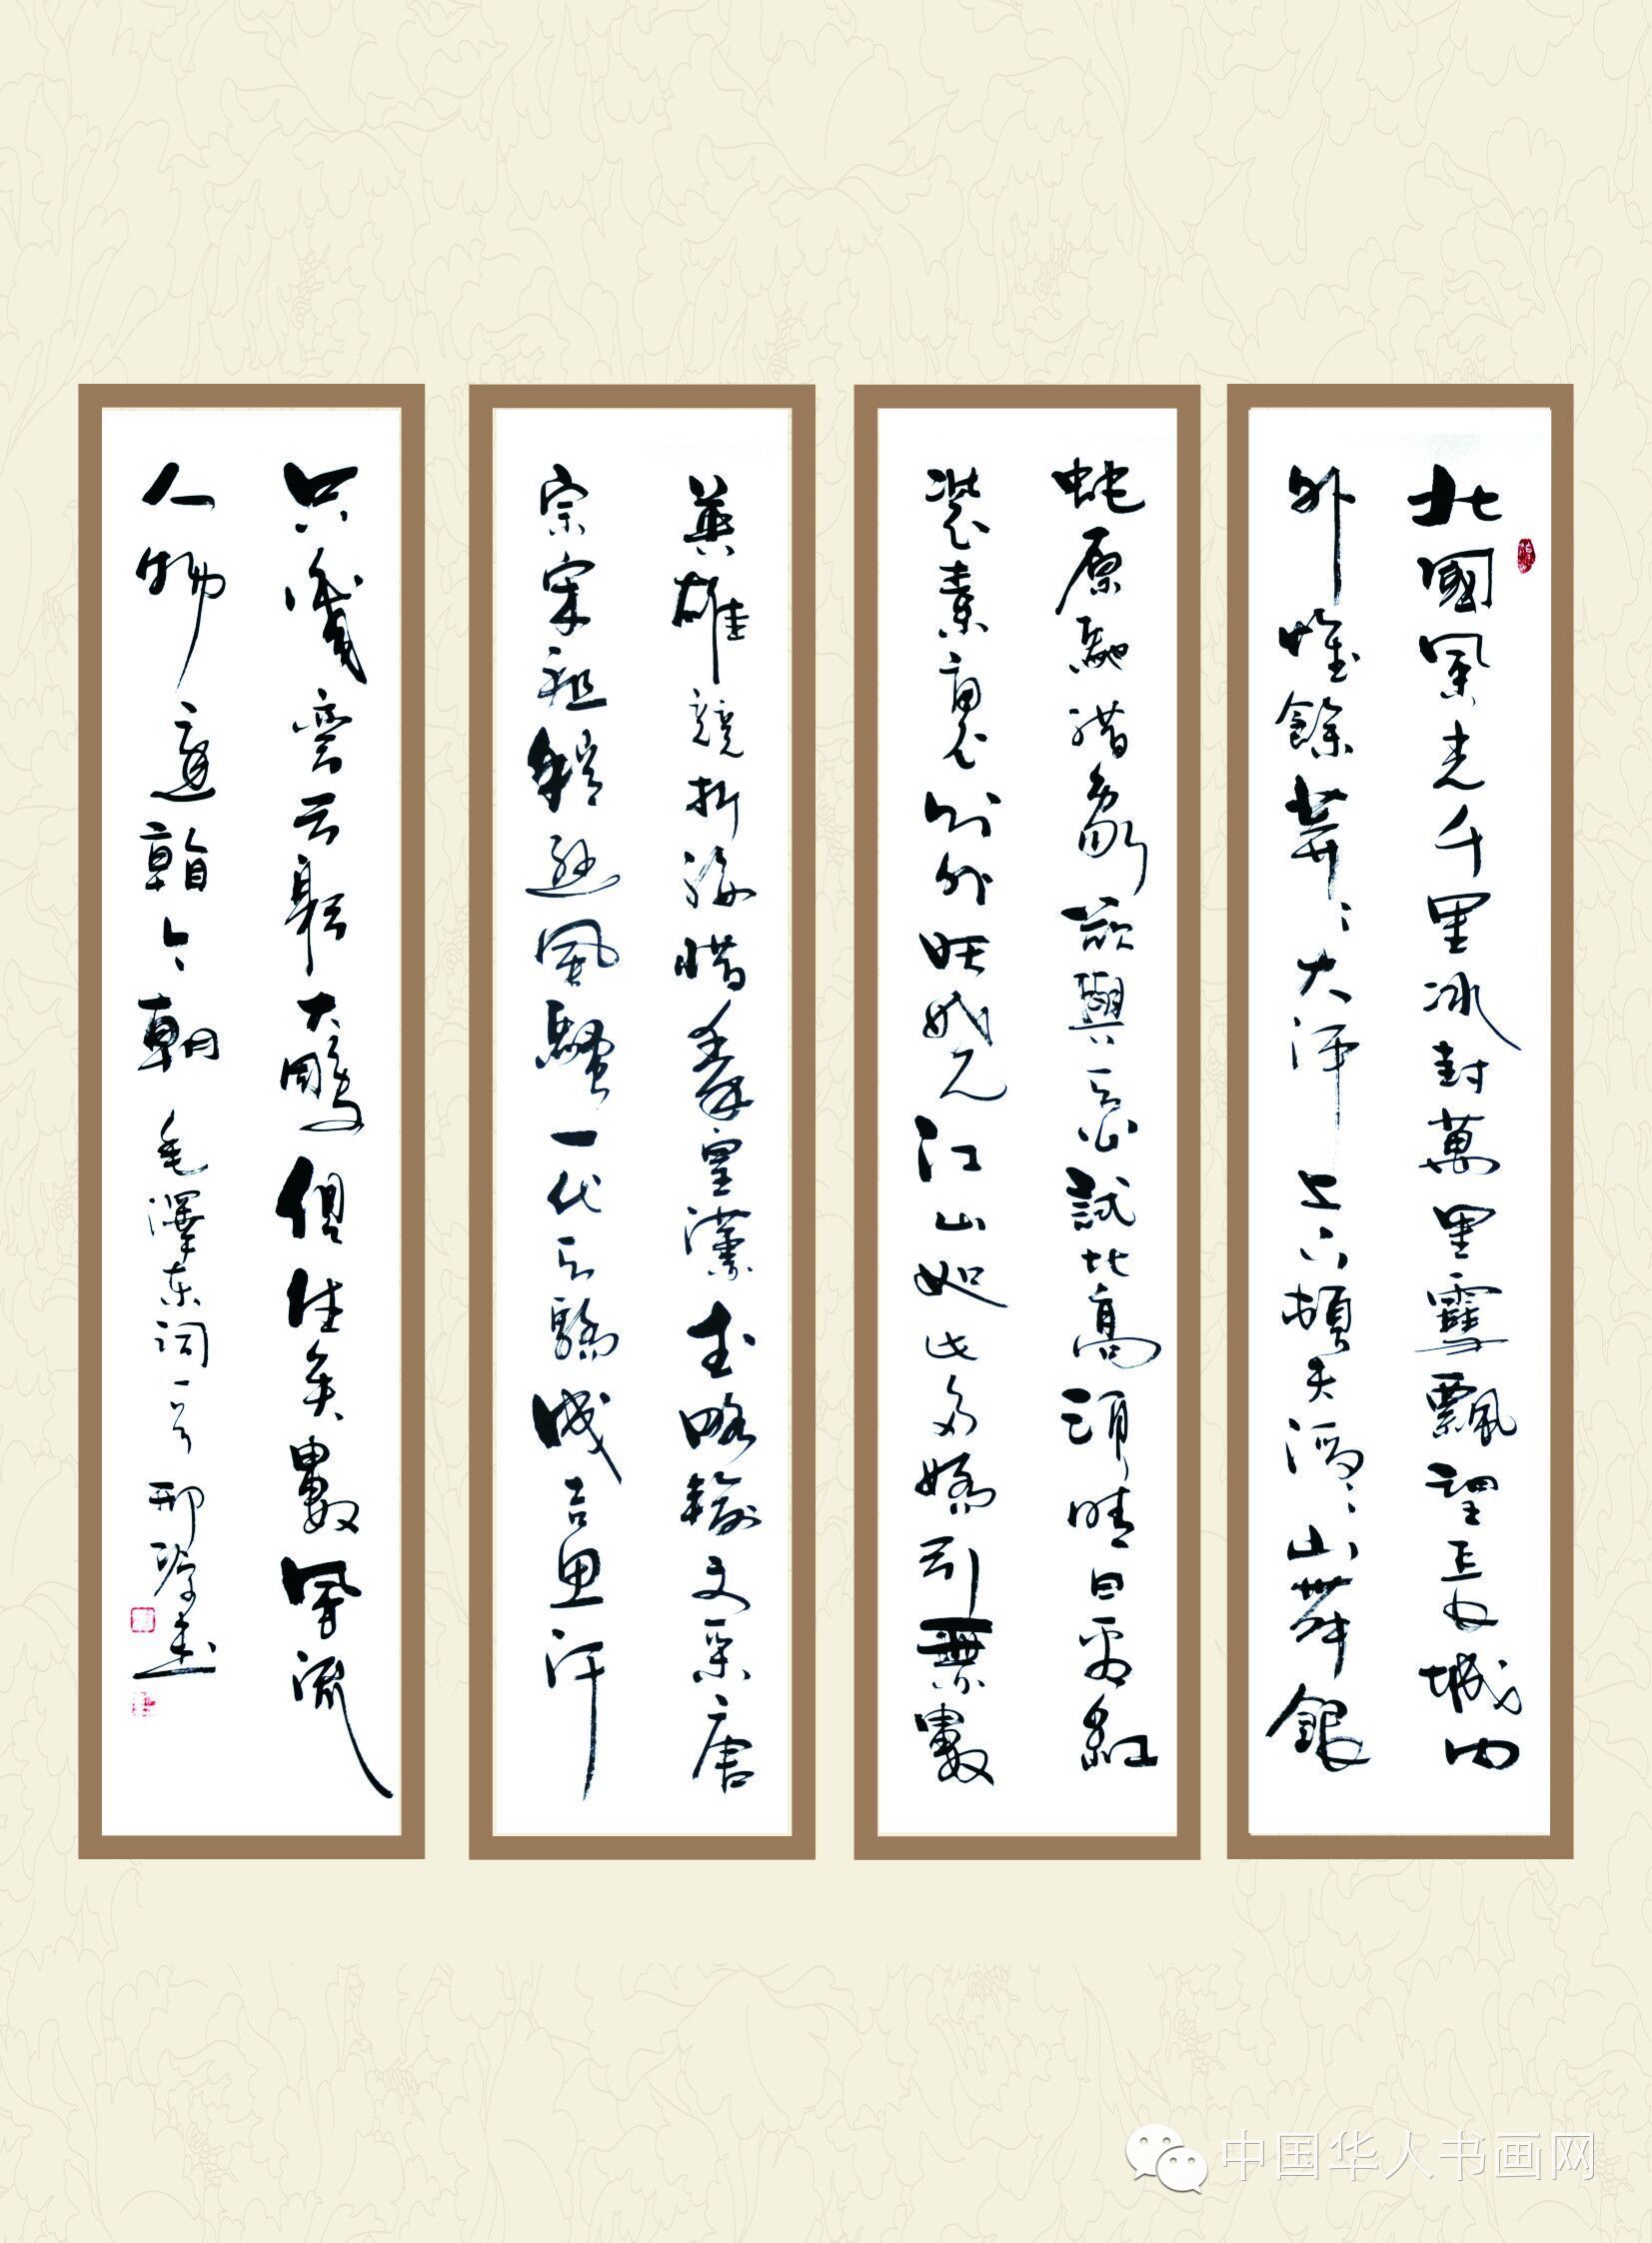 北國風光千里冰封萬里雪飄望長城内
外惟餘莽々大河上下頓失滔々山舞銀
蛇原馳蜡象欲與天公試比高須晴日看紅
裝素裹分外妖娆江山如此多嬌引無數
英雄競折腰惜秦皇漢武略輸文采唐
宗宋祖稍遜風騷一代天驕成吉思汗
只識彎弓射大雕俱往矣數風流
人物還看今朝 毛澤东词一首 邢 書
中国华人书画网